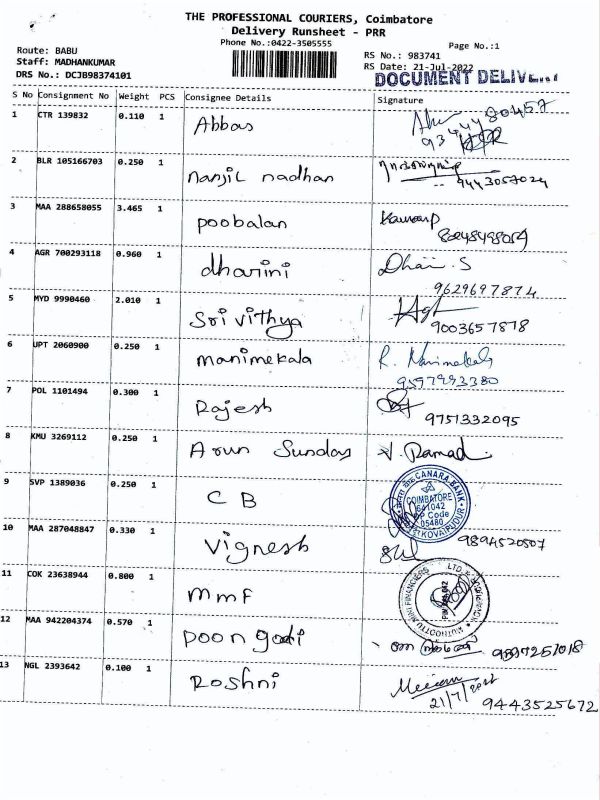 THE PROFESSIONAL COURIERS, Coimbatore
Delivery Runsheet - PRR
Phone No.:0422-3505555
Page No.:1
Route: BABU
Staff: MADHANKUMAR
DRS No.: DCJB98374101
RS No.: 983741
RS Date: 21-Jul-2022
DOCUMENT DELIVERY
S No Consignment No Weight PCS Consignee Details Signature
1 CTR 139832 0.110 1 Abbas
2 BLR 105166703 0.250 1 Nanjil nadhan 9443057024
3 MAA 288658055 3.465 1 Poobalan
4 AGR 700293118 0.960 1 dharini Dhari. S 9629697874
5 MYD 9990460 2.010 1 Sri vithya 9003657878
6 UPT 2060900 0.250 1 manimekala R. Manimekala 9597993380
7 POL 1101494 0.300 1 Rajesh 9751332095
8 KMU 3269112 0.250 1 Arun Sundas V. Ramad
9 SVP 1389036 0.250 1 C B
CANARA BANK
COIMBATORE
641042
DP Code
05480
KOVAIPUDUR
10 MAA 287048847 0.330 1 Vignesh 9894520507
11 COK 23638944 0.800 1 mmf
MUTHOOTTU MINI FINANCIERS LTD
12 MAA 942204374 0.570 1 Poongodi
13 NGL 2393642 0.100 1 Roshni 21/7/2022 9443525672